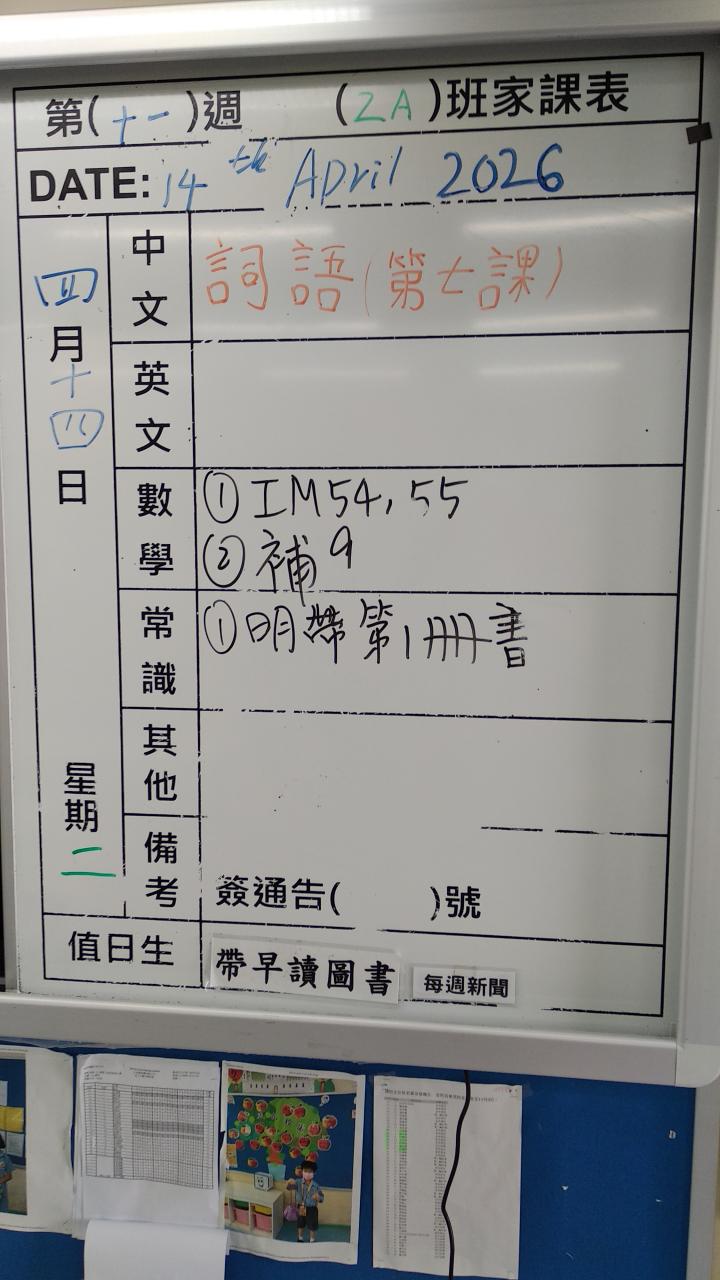 第(十一)週 (2A)班家課表
DATE: 14th April 2026
四月十四日 星期二
中文 詞語(第七課)
英文
數學 ①IM54,55
②補9
常識 ①明帶第1冊書
其他
備考 簽通告( )號
值日生 帶早讀圖書 每週新聞